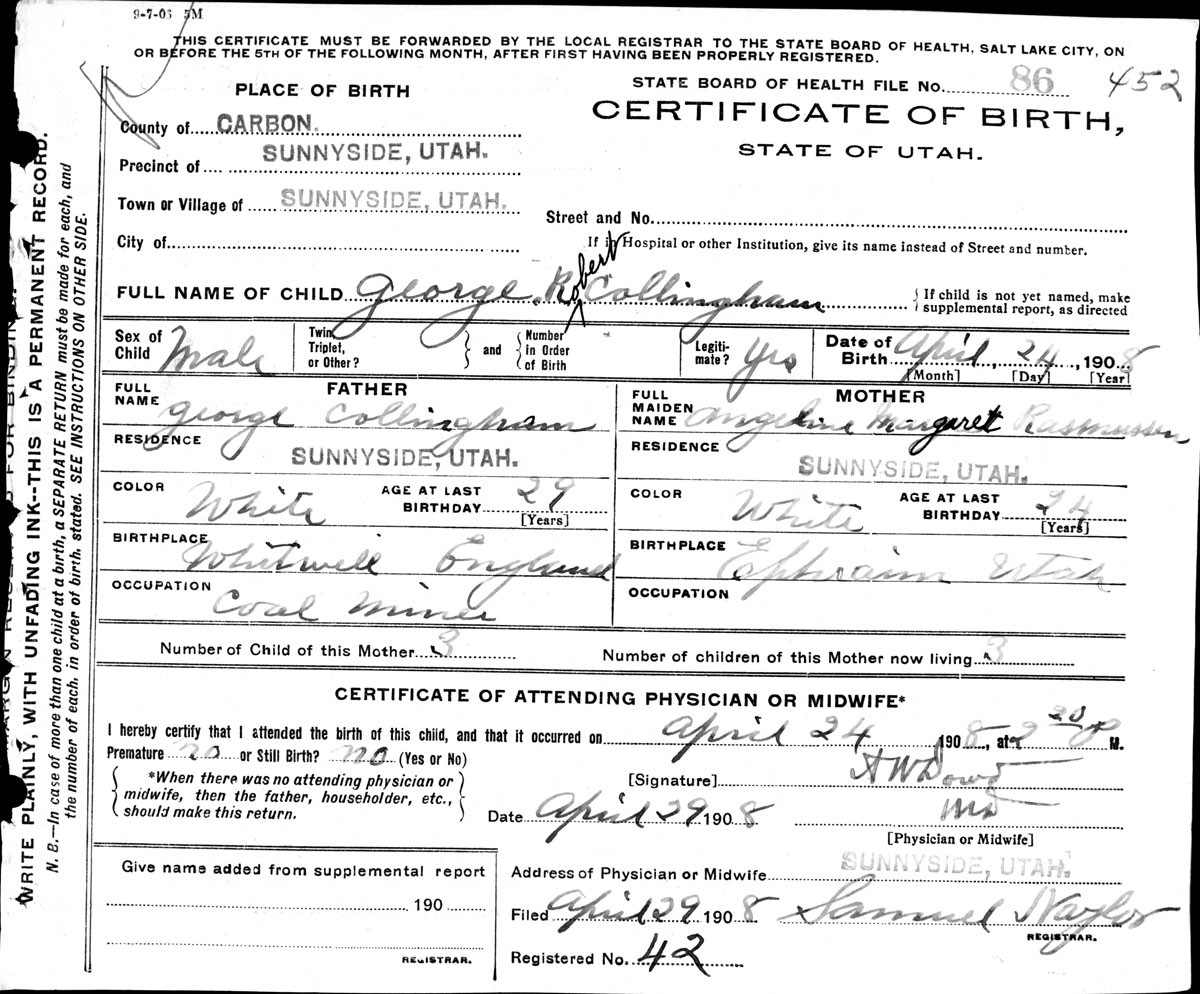 9-7-06 5M
THIS CERTIFICATE MUST BE FORWARDED BY THE LOCAL REGISTRAR TO THE STATE BOARD OF HEALTH, SALT LAKE CITY, ON
OR BEFORE THE 5TH OF THE FOLLOWING MONTH, AFTER FIRST HAVING BEEN PROPERLY REGISTERED.
STATE BOARD OF HEALTH FILE No. 86 452
PLACE OF BIRTH
CERTIFICATE OF BIRTH,
STATE OF UTAH.
County of CARBON.
Precinct of SUNNYSIDE, UTAH.
Town or Village of SUNNYSIDE, UTAH.
Street and No.
City of
If in Hospital or other Institution, give its name instead of Street and number.
FULL NAME OF CHILD George Robert Collingham
If child is not yet named, make
supplemental report, as directed
Sex of
Child Male
Twin,
Triplet,
or Other?
and
Number
in Order
of Birth
Legiti-
mate? Yes
Date of
Birth April 24, 1908
[Month] [Day] [Year]
FATHER
FULL
NAME George Collingham
RESIDENCE
SUNNYSIDE, UTAH.
COLOR White
AGE AT LAST
BIRTHDAY 29
[Years]
BIRTHPLACE Whitwell England
OCCUPATION Coal Miner
MOTHER
FULL
MAIDEN
NAME Angeline Margaret Rasmussen
RESIDENCE
SUNNYSIDE, UTAH.
COLOR White
AGE AT LAST
BIRTHDAY 24
[Years]
BIRTHPLACE Ephraim Utah
OCCUPATION
Number of Child of this Mother 3
Number of children of this Mother now living 3
CERTIFICATE OF ATTENDING PHYSICIAN OR MIDWIFE*
I hereby certify that I attended the birth of this child, and that it occurred on April 24 1908, at 2 20 P M.
Premature no or Still Birth? no (Yes or No)
*When there was no attending physician or
midwife, then the father, householder, etc.,
should make this return.
[Signature] A W Dowd
Date April 29 1908 MD
[Physician or Midwife]
Give name added from supplemental report
190
REGISTRAR.
Address of Physician or Midwife SUNNYSIDE, UTAH.
Filed April 29 1908 Samuel Naylor
REGISTRAR.
Registered No. 42
WRITE PLAINLY, WITH UNFADING INK--THIS IS A PERMANENT RECORD.
N. B.—In case of more than one child at a birth, a SEPARATE RETURN must be made for each, and
the number of each, in order of birth, stated. SEE INSTRUCTIONS ON OTHER SIDE.